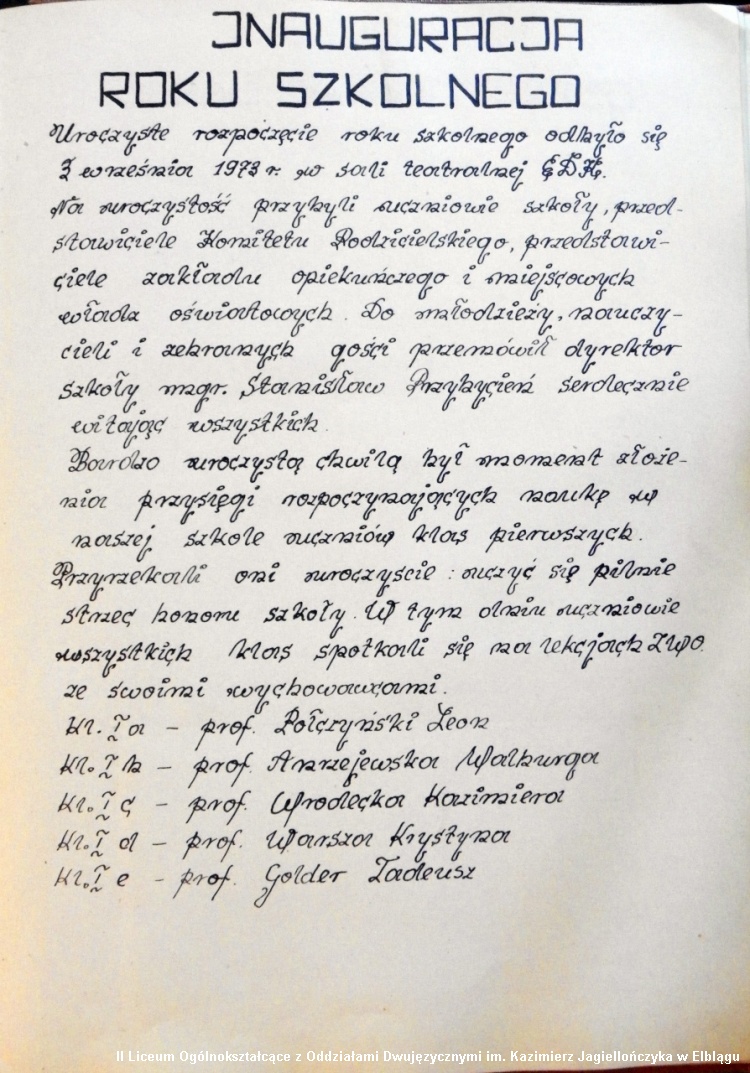 INAUGURACJA
ROKU SZKOLNEGO
Uroczyste rozpoczęcie roku szkolnego odbyło się
3 września 1973 r. w sali teatralnej EDK.
Na uroczystość przybyli uczniowie szkoły, przed-
stawiciele Komitetu Rodzicielskiego, przedstawi-
ciele zakładu opiekuńczego i miejscowych
władz oświatowych. Do młodzieży, nauczy-
cieli i zebranych gości przemówił dyrektor
szkoły mgr. Stanisław Przybycień serdecznie
witając wszystkich.
Bardzo uroczystą chwilą był moment złoże-
nia przysięgi rozpoczynających naukę w
naszej szkole uczniów klas pierwszych.
Przyrzekali oni uroczyście : uczyć się pilnie
strzec honoru szkoły. W tym dniu uczniowie
wszystkich klas spotkali się na lekcjach ZWO.
ze swoimi wychowawcami.
Kl. I a - prof. Połczyński Leon
Kl. I b - prof. Anrzejewska Walburga
Kl. I c - prof. Wrodecka Kazimiera
Kl. I d - prof. Warsza Krystyna
Kl. I e - prof. Golder Tadeusz
II Liceum Ogólnokształcące z Oddziałami Dwujęzycznymi im. Kazimierz Jagiellończyka w Elblągu